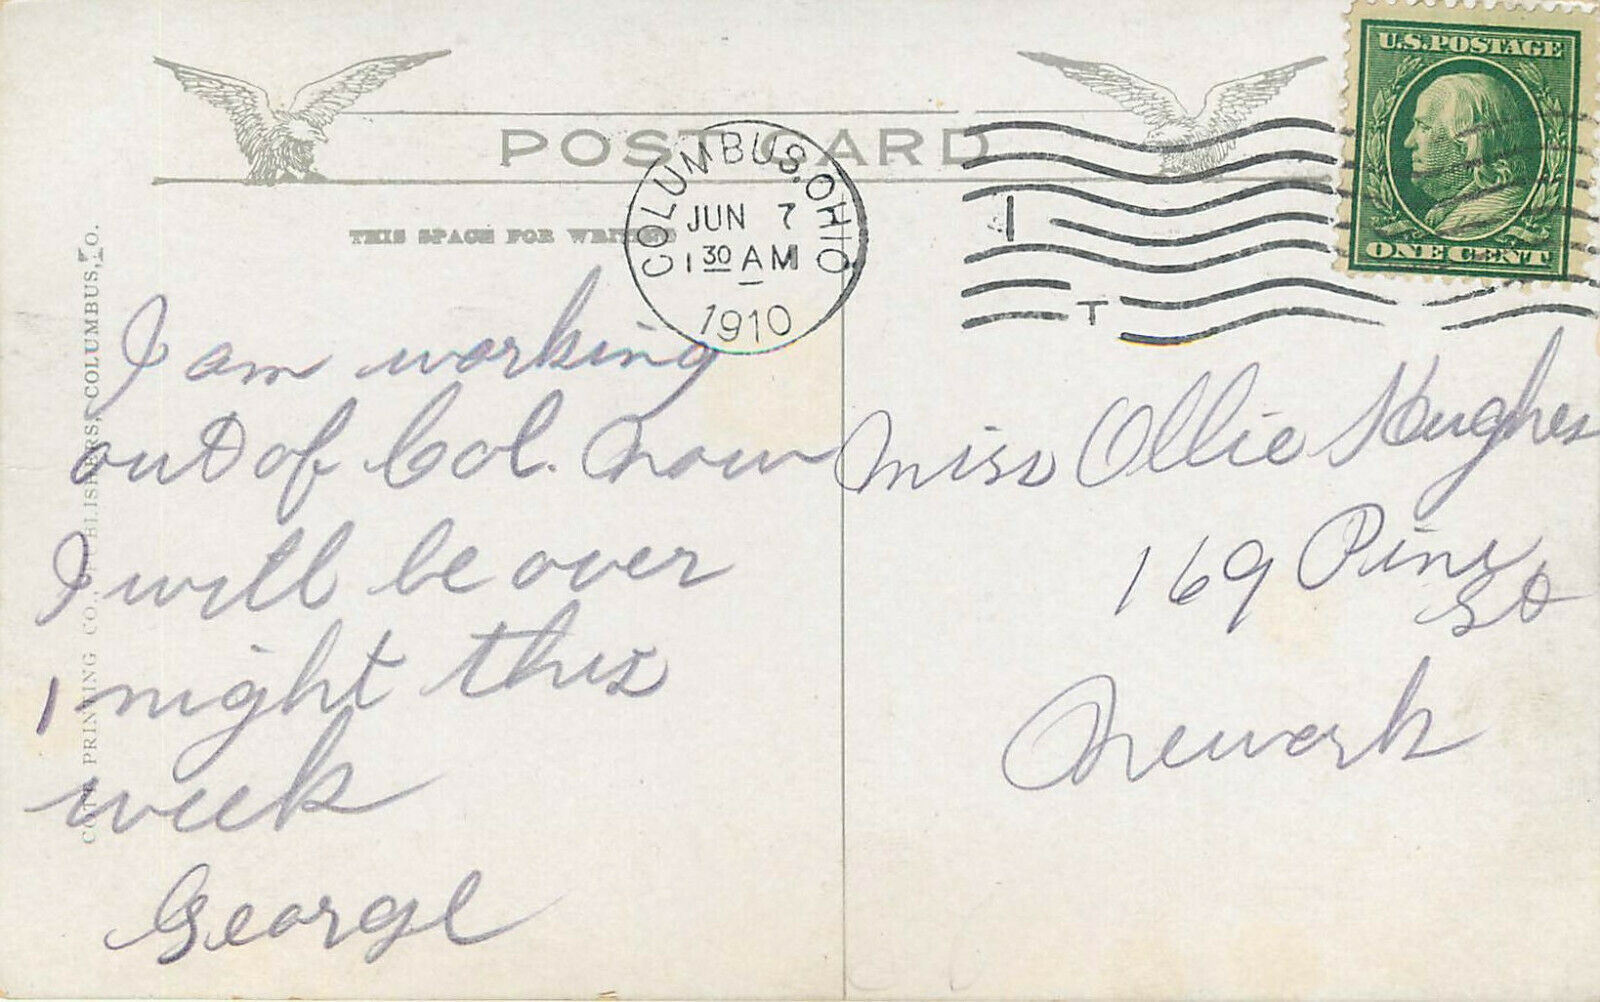 POST CARD
THIS SPACE FOR WRITING
COLUMBUS, OHIO
JUN 7
1 30 AM
1910
1
T
U.S. POSTAGE
ONE CENT
I am working
out of Col. now
I will be over
1 night this
week
George
Miss Ollie Hughes
169 Pine
St
Newark
PRINTING CO., PUBLISHERS, COLUMBUS, O.